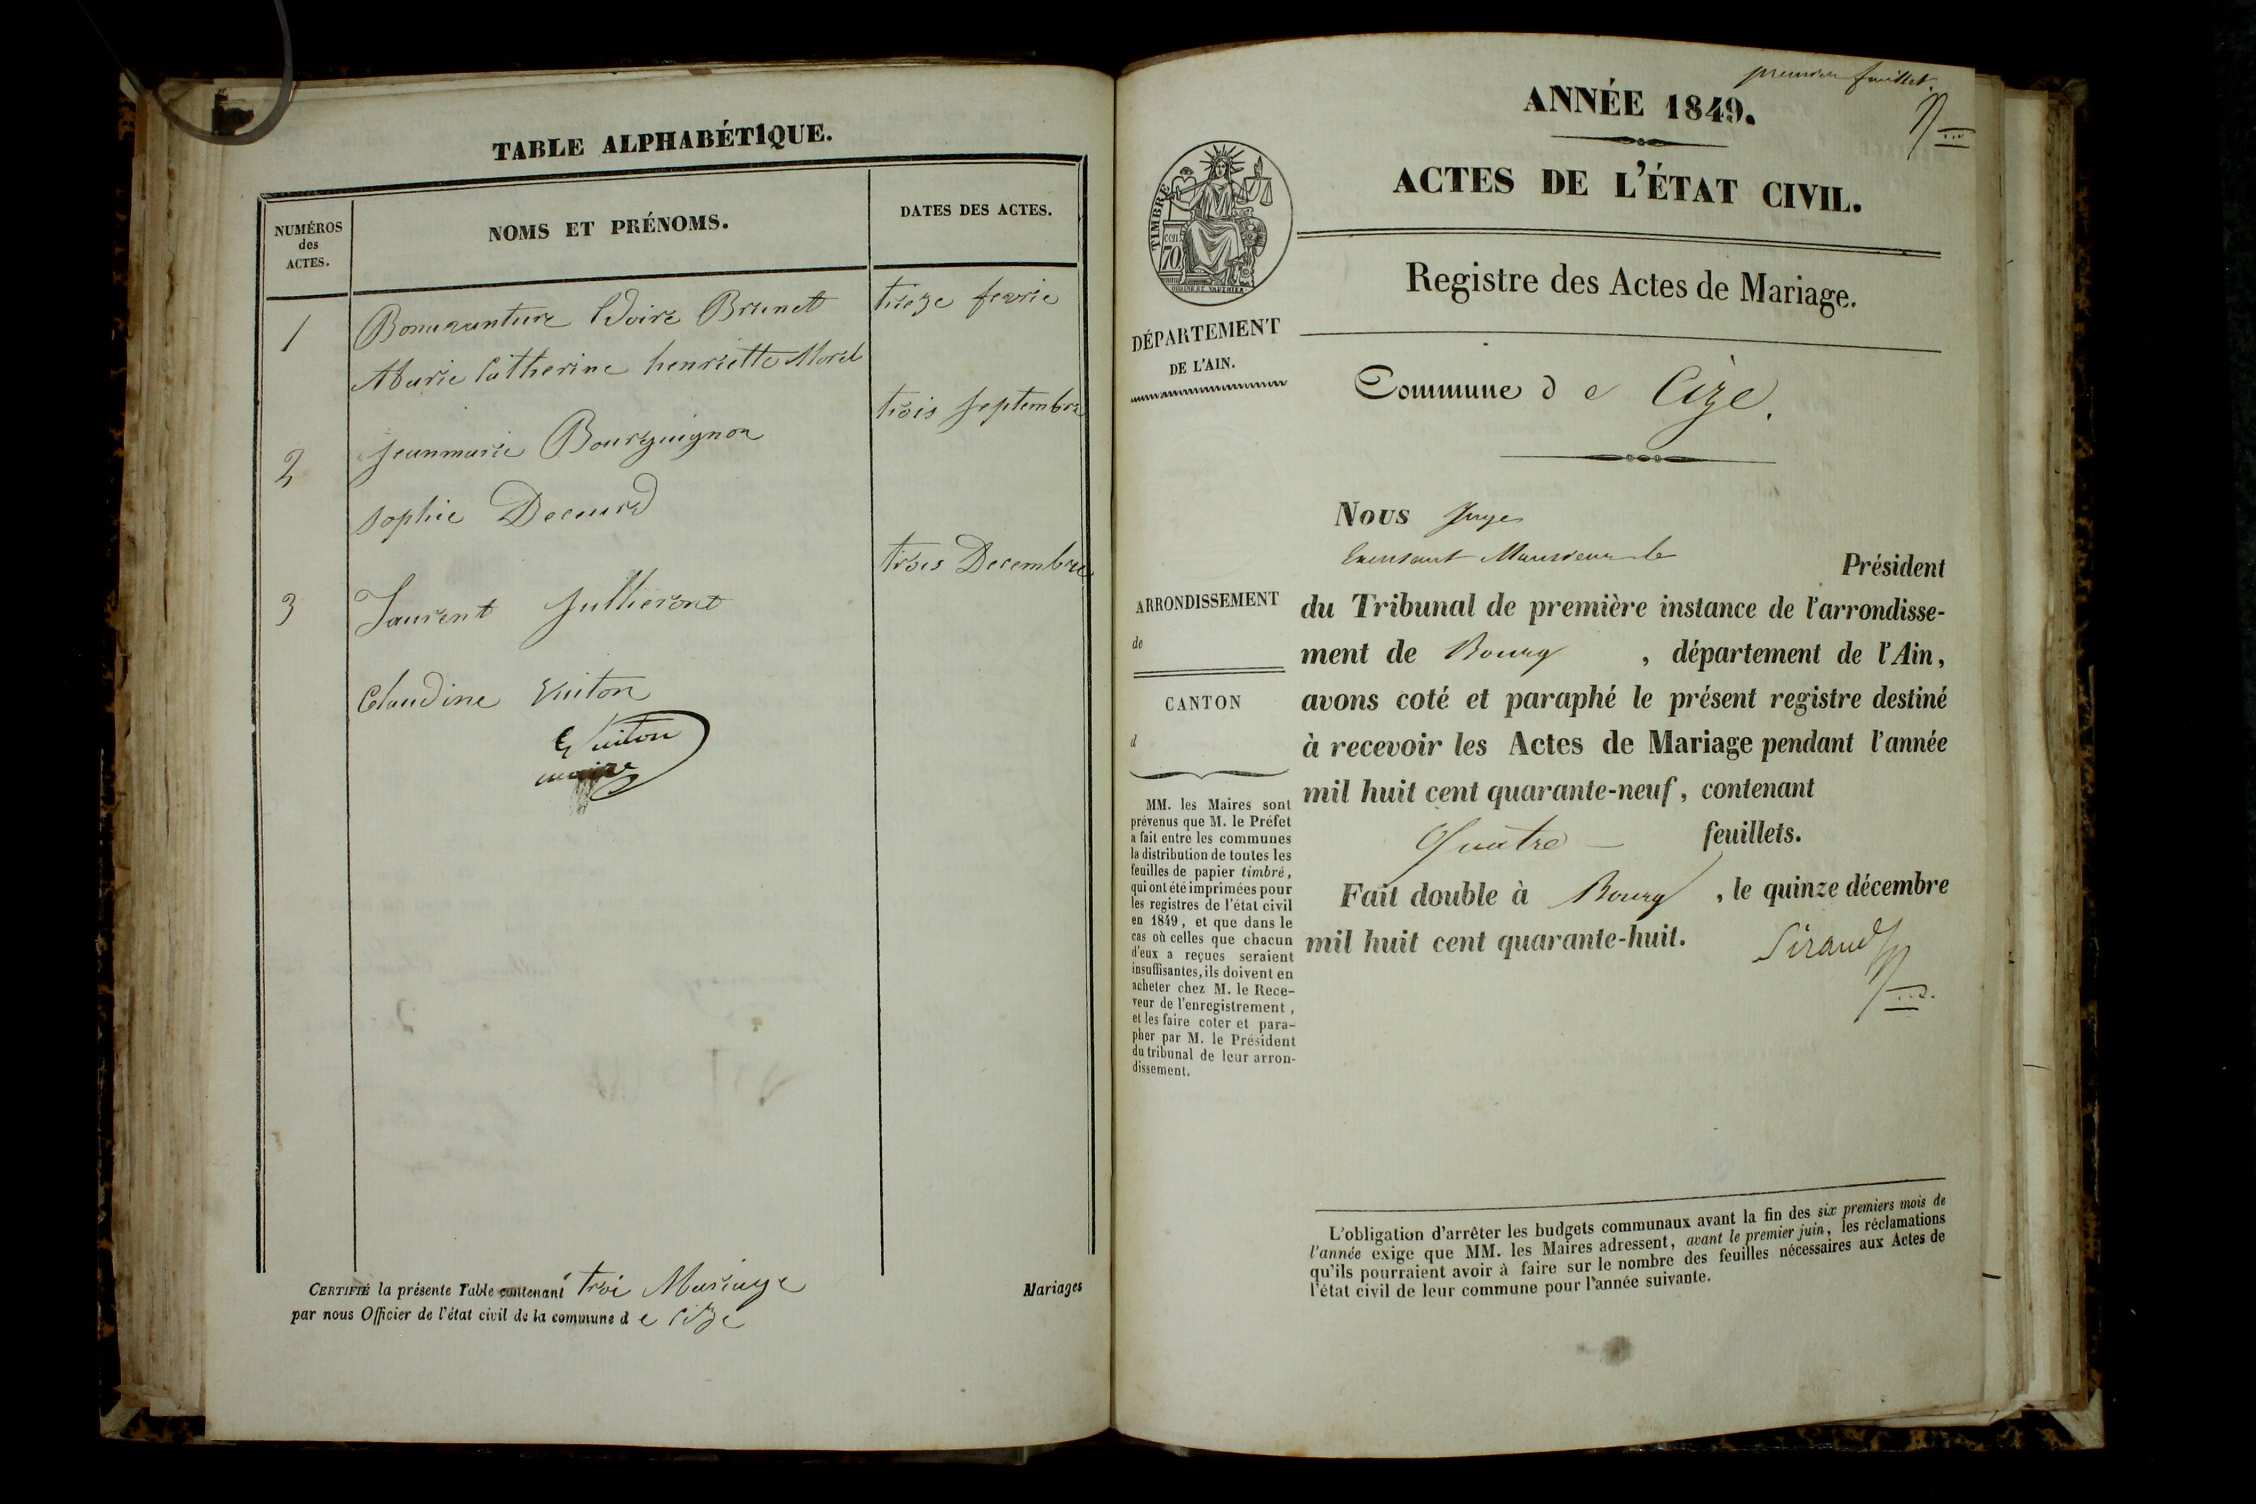 TABLE ALPHABÉTIQUE.
NUMÉROS
des
ACTES.
NOMS ET PRÉNOMS.
DATES DES ACTES.
1
Bonavanture Brunet
treze fevrie
Marie Catherine henriette Morel
2
jeanmarie Bourguignon
trois septembre
sophie Decourd
3
Laurent Jullieront
trois Decembre
Claudine Vuiton
Vuiton
maire
CERTIFIÉ la présente Table contenant troi Mariage Mariages
par nous Officier de l'état civil de la commune d e Cize
premier feuillet.
ANNÉE 1849.
ACTES DE L'ÉTAT CIVIL.
TIMBRE
70
Registre des Actes de Mariage.
DÉPARTEMENT
DE L'AIN.
Commune d e Cize.
ARRONDISSEMENT
de
CANTON
d
MM. les Maires sont
prévenus que M. le Préfet
a fait entre les communes
la distribution de toutes les
feuilles de papier timbré,
qui ont été imprimées pour
les registres de l'état civil
en 1849, et que dans le
cas où celles que chacun
d'eux a reçues seraient
insuffisantes, ils doivent en
acheter chez M. le Rece-
veur de l'enregistrement,
et les faire coter et para-
pher par M. le Président
du tribunal de leur arron-
dissement.
Nous Juge
Monsieur le Président
du Tribunal de première instance de l'arrondisse-
ment de Bourg, département de l'Ain,
avons coté et paraphé le présent registre destiné
à recevoir les Actes de Mariage pendant l'année
mil huit cent quarante-neuf, contenant
Quatre feuillets.
Fait double à Bourg, le quinze décembre
mil huit cent quarante-huit.
Siraud
L'obligation d'arrêter les budgets communaux avant la fin des six premiers mois de
l'année exige que MM. les Maires adressent, avant le premier juin, les réclamations
qu'ils pourraient avoir à faire sur le nombre des feuilles nécessaires aux Actes de
l'état civil de leur commune pour l'année suivante.